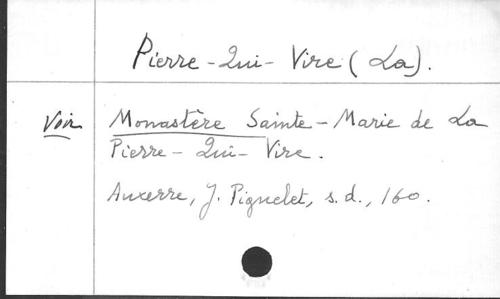 Pierre-Qui-Vire (La).
Voir Monastère Sainte-Marie de La
Pierre-Qui-Vire.
Auxerre, J. Pignelet, s.d., 160.